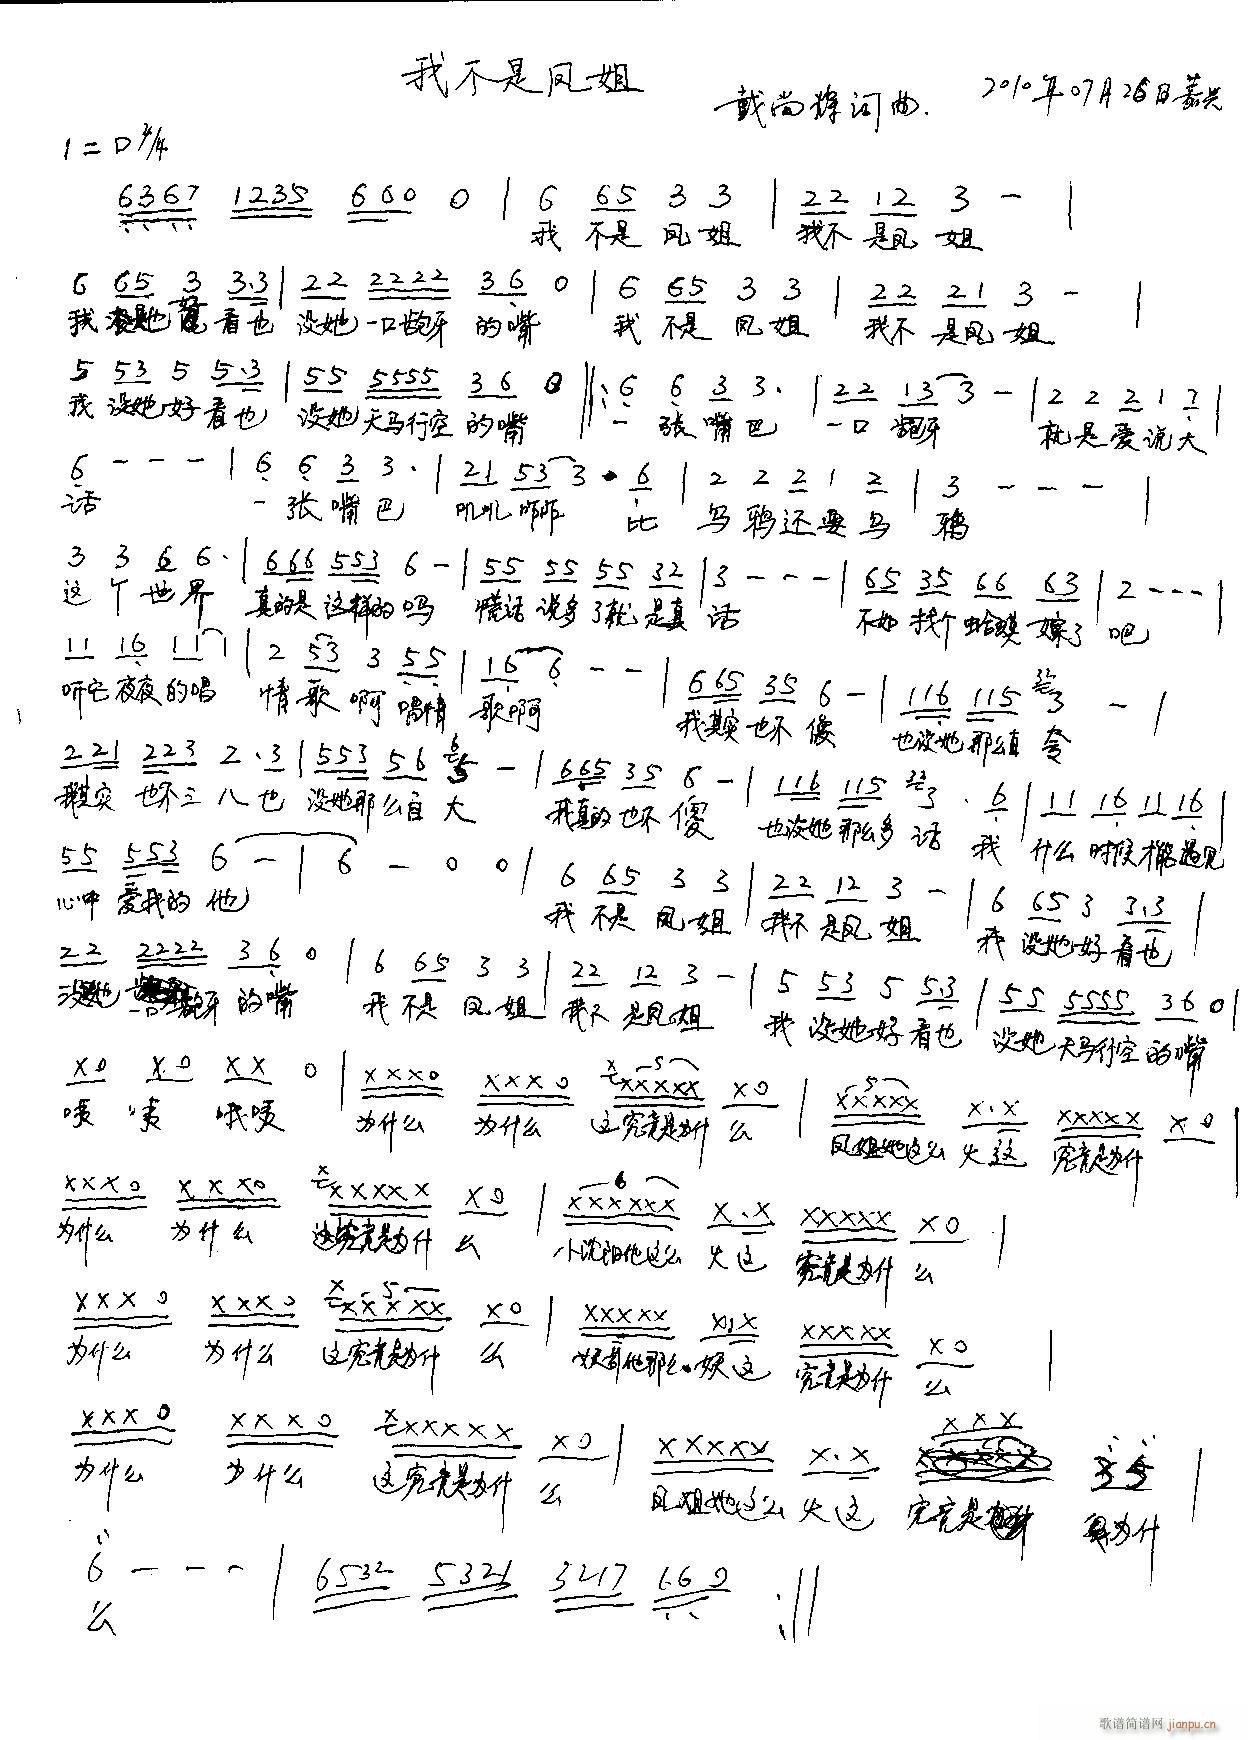 我不是凤姐
戴尚辉词曲. 2010年07月26日嘉兴
1=D 4/4
6367 1235 660 0 | 6 65 3 3 | 22 12 3 - |
我 不是 凤 姐 我不 是凤 姐
6 65 3 3.3 | 22 2222 36 0 | 6 65 3 3 | 22 21 3 - |
我 没她 好 看也 没她 一口龅牙 的嘴 我 不是 凤 姐 我不 是凤 姐
5 53 5 5.3 | 55 5555 36 0 ‖: 6 6 3 3. | 22 13 3 - | 2 2 2 1 7 |
我 没她 好 看也 没她 天马行空 的嘴 一 张 嘴 巴 一口 龅牙 就是爱说大
6 - - - | 6 6 3 3. | 21 53 3 . 6 | 2 2 2 1 2 | 3 - - - |
话 一 张 嘴 巴 叽叽 咋咋 比 乌鸦还要乌 鸦
3 3 6 6. | 666 553 6 - | 55 55 55 32 | 3 - - - | 65 35 66 63 | 2 - - - |
这 个 世 界 真的是 这样的 吗 谎话 说多 了就 是真 话 不如 找个 蛤蟆 嫁了 吧
11 16 11 1 | 2 53 3 55 | 16 6 - - | 665 35 6 - | 116 115 3 - |
听它 夜夜 的唱 情 歌 啊 唱情 歌啊 我其实 也不 傻 也没她 那么自 夸
221 223 2.3 | 553 56 5 - | 665 35 6 - | 116 115 3 . 6 | 11 16 11 16 |
我其实 也不三 八 也 没她那么自 大 我真的 也不 傻 也没她 那么多 话 我 什么 时候 才能 遇见
55 553 6 - | 6 - 0 0 | 6 65 3 3 | 22 12 3 - | 6 65 3 3.3 |
心中 爱我的 他 我 不是 凤 姐 我不 是凤 姐 我 没她 好 看也
22 2222 36 0 | 6 65 3 3 | 22 12 3 - | 5 53 5 5.3 | 55 5555 36 0 |
没她 一口龅牙 的嘴 我 不是 凤 姐 我不 是凤 姐 我 没她 好 看也 没她 天马行空 的嘴
X0 X0 XX 0 | XXX0 XXX0 XXXXX X0 | XXXXX X.X XXXXX X0 |
啧 啧 哦啧 为什么 为什么 这究竟是为什 么 凤姐她这么 火 这 究竟是为什
XXX0 XXX0 XXXXX X0 | XXXXXX X.X XXXXX X0 |
为什么 为什么 这究竟是为什 么 小沈阳他这么 火 这 究竟是为什 么
XXX0 XXX0 XXXXX X0 | XXXXX X.X XXXXX X0 |
为什么 为什么 这究竟是为什 么 他那么 娱 这 究竟是为什 么
XXX0 XXX0 XXXXX X0 | XXXXX X.X XXX 3 3 |
为什么 为什么 这究竟是为什 么 凤姐她这么 火 这 究竟是 为什
6 - - - | 6532 5321 3217 1.60 :‖
么
歌谱简谱网 jianpu.cn